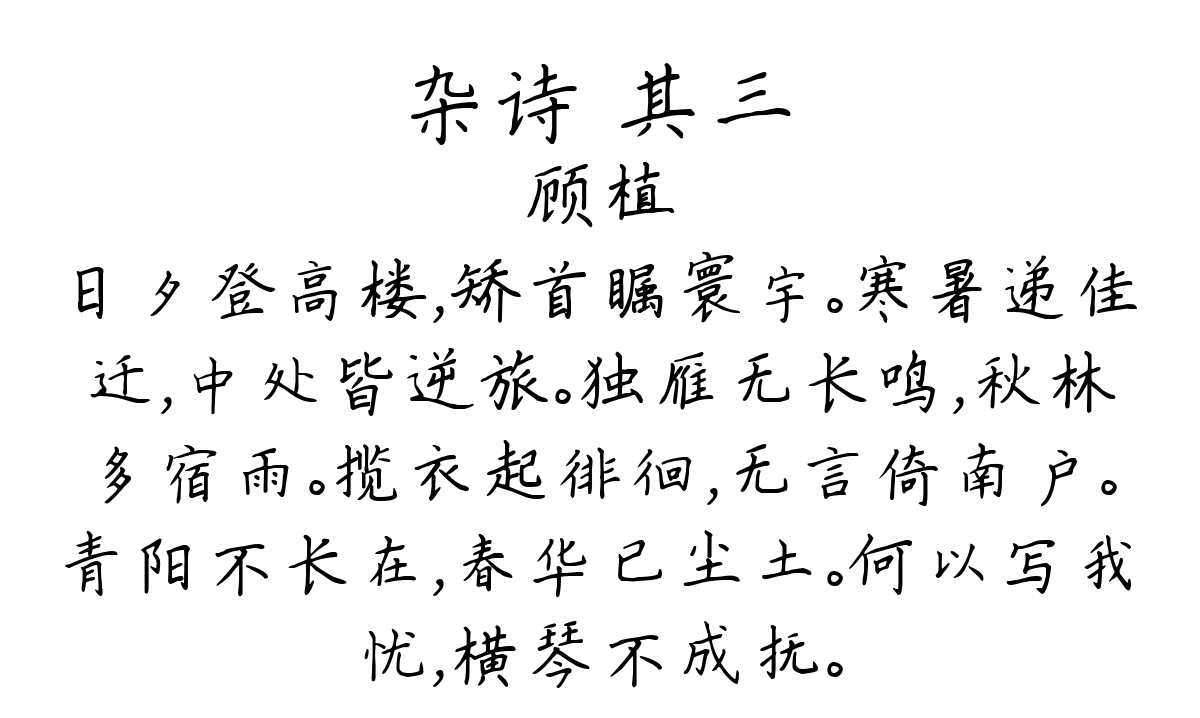 杂诗 其三
顾植
日夕登高楼,矫首瞩寰宇。寒暑递佳
迁,中处皆逆旅。独雁无长鸣,秋林
多宿雨。揽衣起徘徊,无言倚南户。
青阳不长在,春华已尘土。何以写我
忧,横琴不成抚。